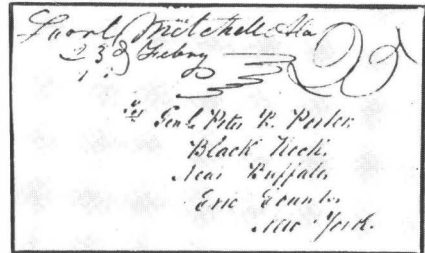 Fort Mitchell Ala
23d Febry
25
Genl. Peter B. Porter
Black Rock
Near Buffalo
Erie County
New York.